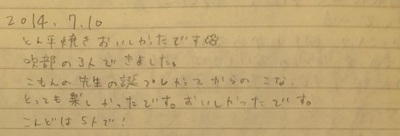 2014.7.10
とん平焼きおいしかったです
吹部の3人できました。
こもんの先生の誕プレかってからの こな。
とっても楽しかったです。おいしかったです。
こんどは5人で!